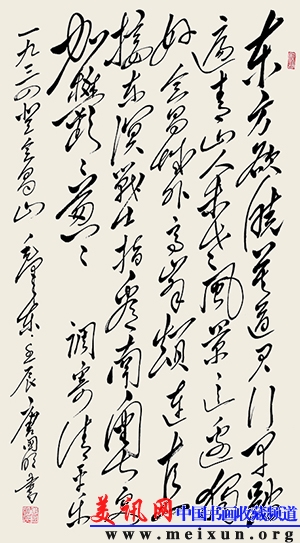 东方欲晓莫道君行早踏
遍青山人未老风景这边独
好会昌城外高峰颠连直
接东溟戰士指看南粤更
加鬱々葱々
调寄清平乐
一九三四登会昌山 毛泽东 壬辰
美讯网 中国书画收藏频道
www.meixun.org